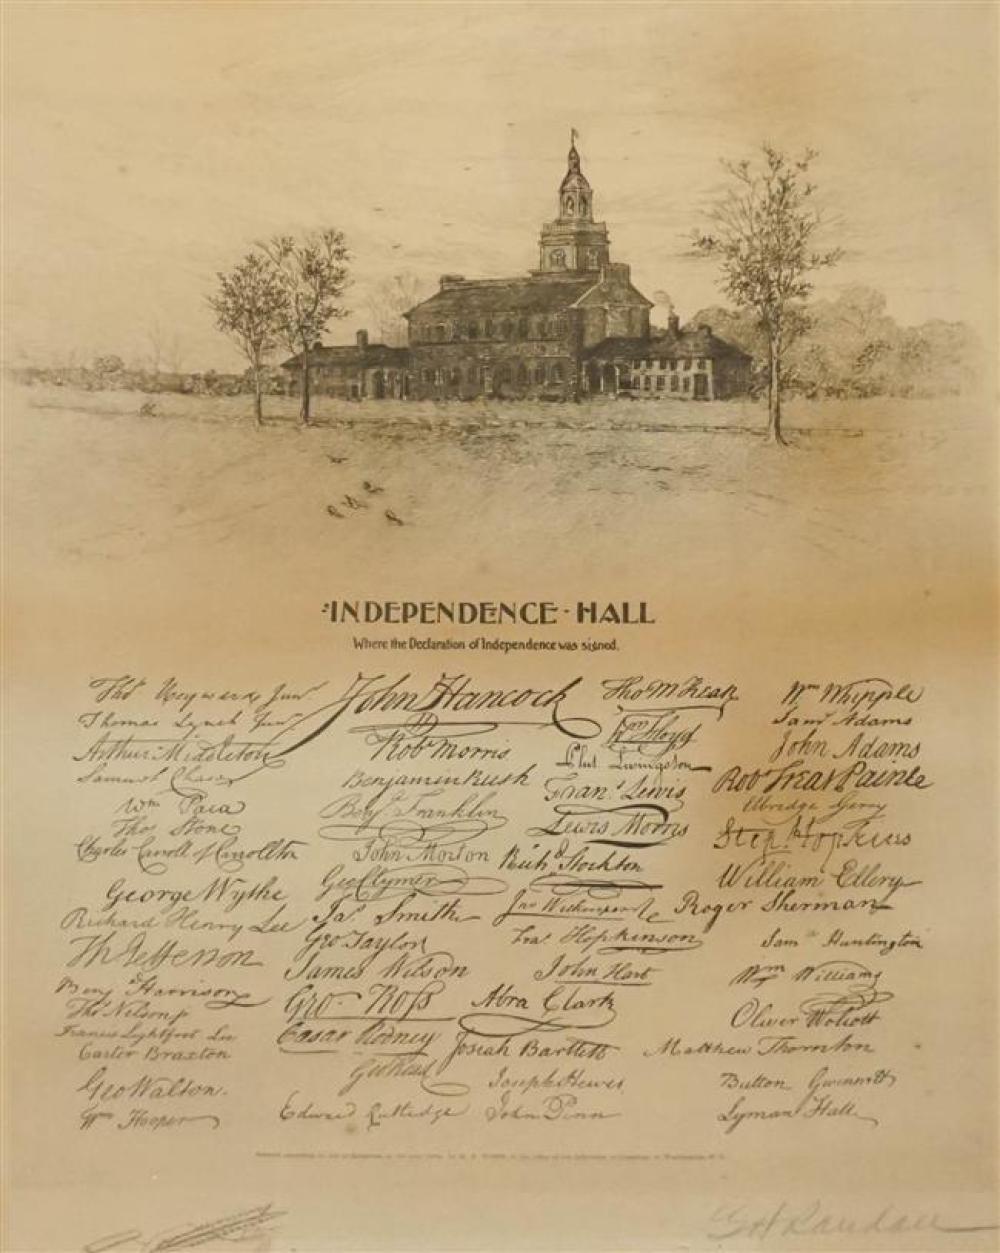 INDEPENDENCE - HALL
Where the Declaration of Independence was signed.
Thos Heyward Junr
Thomas Lynch Junr
Arthur Middleton
Samuel Chase
Wm Paca
Thos Stone
Charles Carroll of Carrollton
George Wythe
Richard Henry Lee
Th Jefferson
Benj Harrison
Thos Nelson jr
Francis Lightfoot Lee
Carter Braxton
Geo Walton.
Wm Hooper
John Hancock
Robt Morris
Benjamin Rush
Benj Franklin
John Morton
Geo Clymer
Jas Smith
Geo Taylor
James Wilson
Geo Ross
Caesar Rodney
Geo Read
Edward Rutledge
Tho M:Kean
Wm Floyd
Phil. Livingston
Frans Lewis
Lewis Morris
Richd Stockton
Jno Witherspoon
Fras Hopkinson
John Hart
Abra Clark
Josiah Bartlett
Joseph Hewes
John Penn
Wm Whipple
Saml Adams
John Adams
Robt Treat Paine
Elbridge Gerry
Step. Hopkins
William Ellery
Roger Sherman
Saml Huntington
Wm Williams
Oliver Wolcott
Matthew Thornton
Button Gwinnett
Lyman Hall
G H Randall